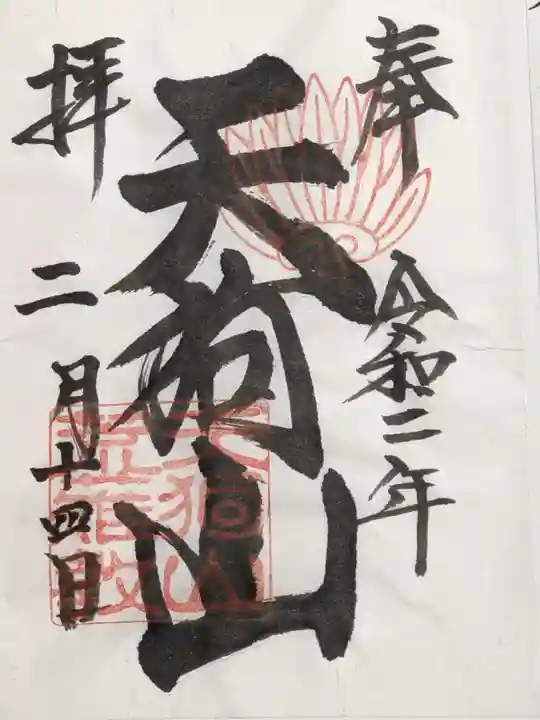 奉
令和二年
天狗山
拝
二月十四日